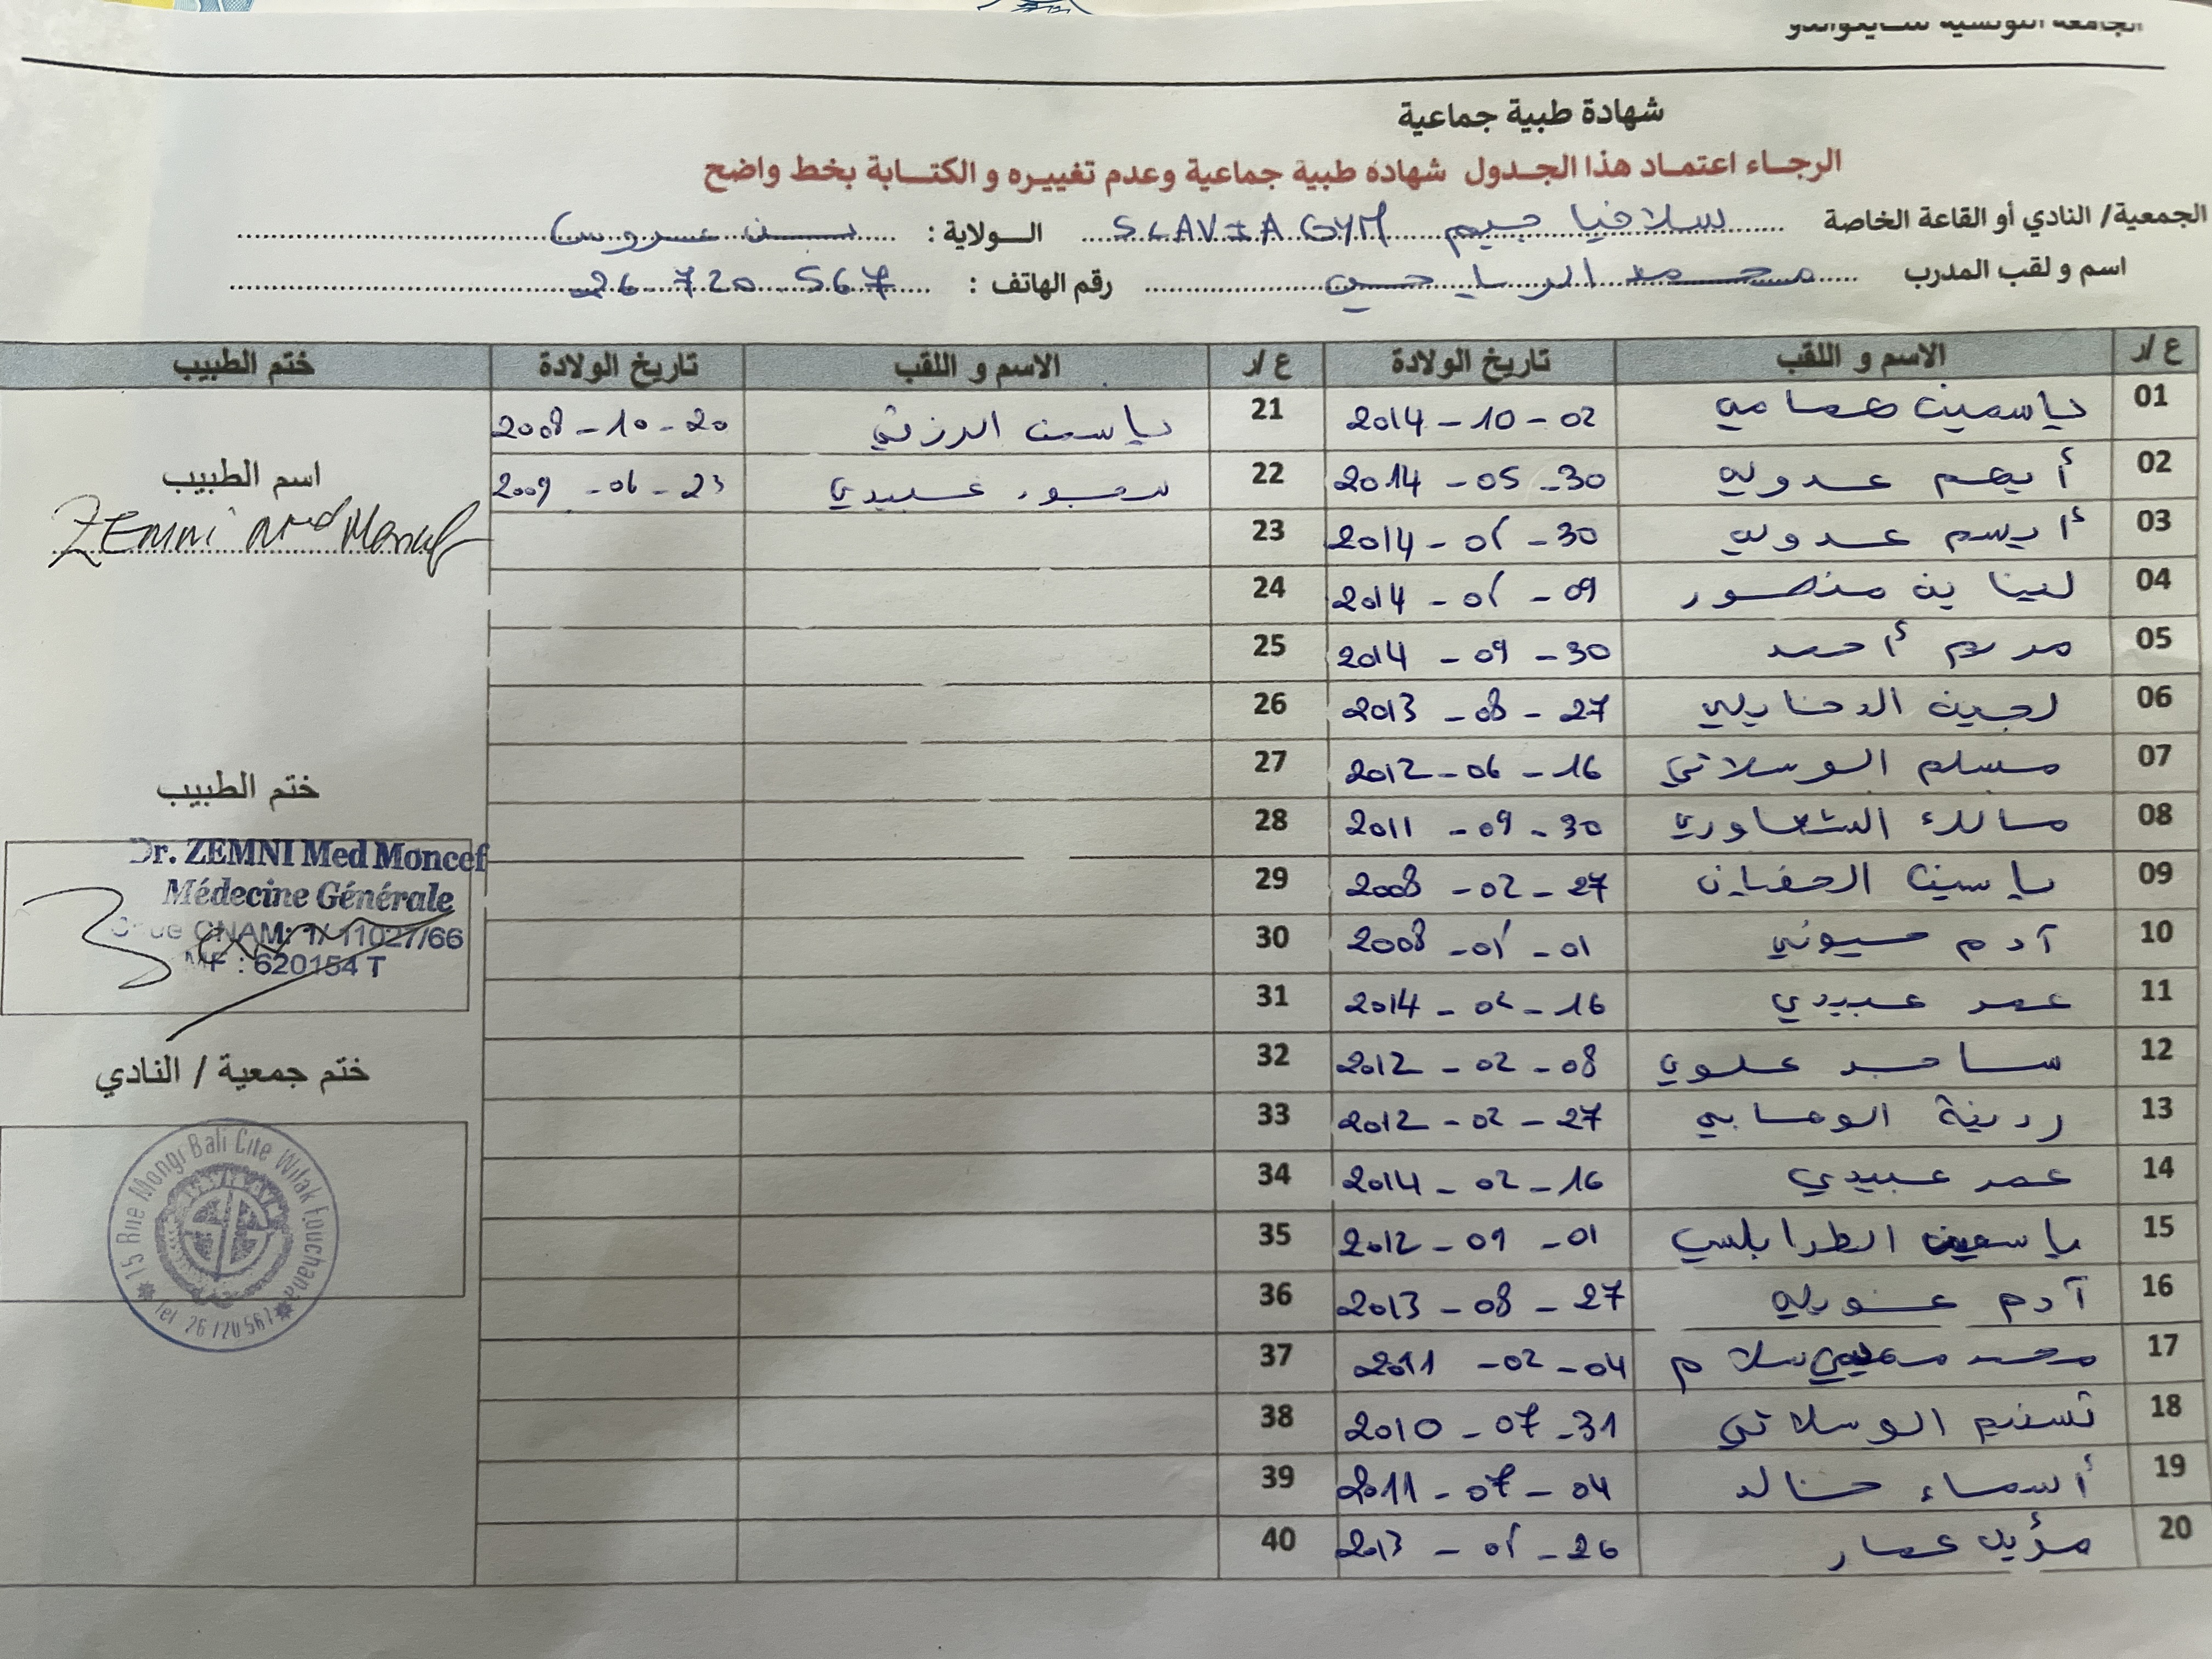 الجامعة التونسية
شهادة طبية جماعية
الرجاء اعتماد هذا الجدول شهادة طبية جماعية وعدم تغييره و الكتابة بخط واضح
الجمعية/ النادي أو القاعة الخاصة سلافيا جيم SLAVIA GYM الولاية : بن عروس
اسم و لقب المدرب محمد الرياحي رقم الهاتف : 26 720 567
ع/ر الاسم و اللقب تاريخ الولادة ع/ر الاسم و اللقب تاريخ الولادة ختم الطبيب
01 ياسمين همامي 02 - 10 - 2014 21 ياسين الرزقي 20 - 10 - 2008
02 أيهم عدولي 30 - 05 - 2014 22 عبيدي 23 - 06 - 2009
03 عدولي 30 - 2014 23
04 لينا بن منصور 09 - 2014 24
05 مريم أحمد 30 - 09 - 2014 25
06 لجين الدخايلي 27 - 08 - 2013 26
07 مسلم الوسلاتي 16 - 06 - 2012 27
08 مالك 30 - 09 - 2011 28
09 ياسين 27 - 02 - 2008 29
10 آدم 01 - 2008 30
11 عمر عبيدي 16 - 02 - 2014 31
12 ساجد علوي 08 - 02 - 2012 32
13 27 - 02 - 2012 33
14 عمر عبيدي 16 - 02 - 2014 34
15 ياسمين الطرابلسي 01 - 09 - 2012 35
16 آدم 27 - 08 - 2013 36
17 محمد سلام 04 - 02 - 2011 37
18 تسنيم الوسلاتي 31 - 07 - 2010 38
19 أسماء خالد 04 - 07 - 2011 39
20 مؤيد عمار 26 - 2013 40
اسم الطبيب
ZEMNI Med Moncef
ختم الطبيب
Dr. ZEMNI Med Moncef
Médecine Générale
CNAM: 1/ 11027/66
MF : 620154 T
ختم جمعية / النادي
15 Rue Mongi Bali Cite Wifak Fouchana
Tel 26 720 567